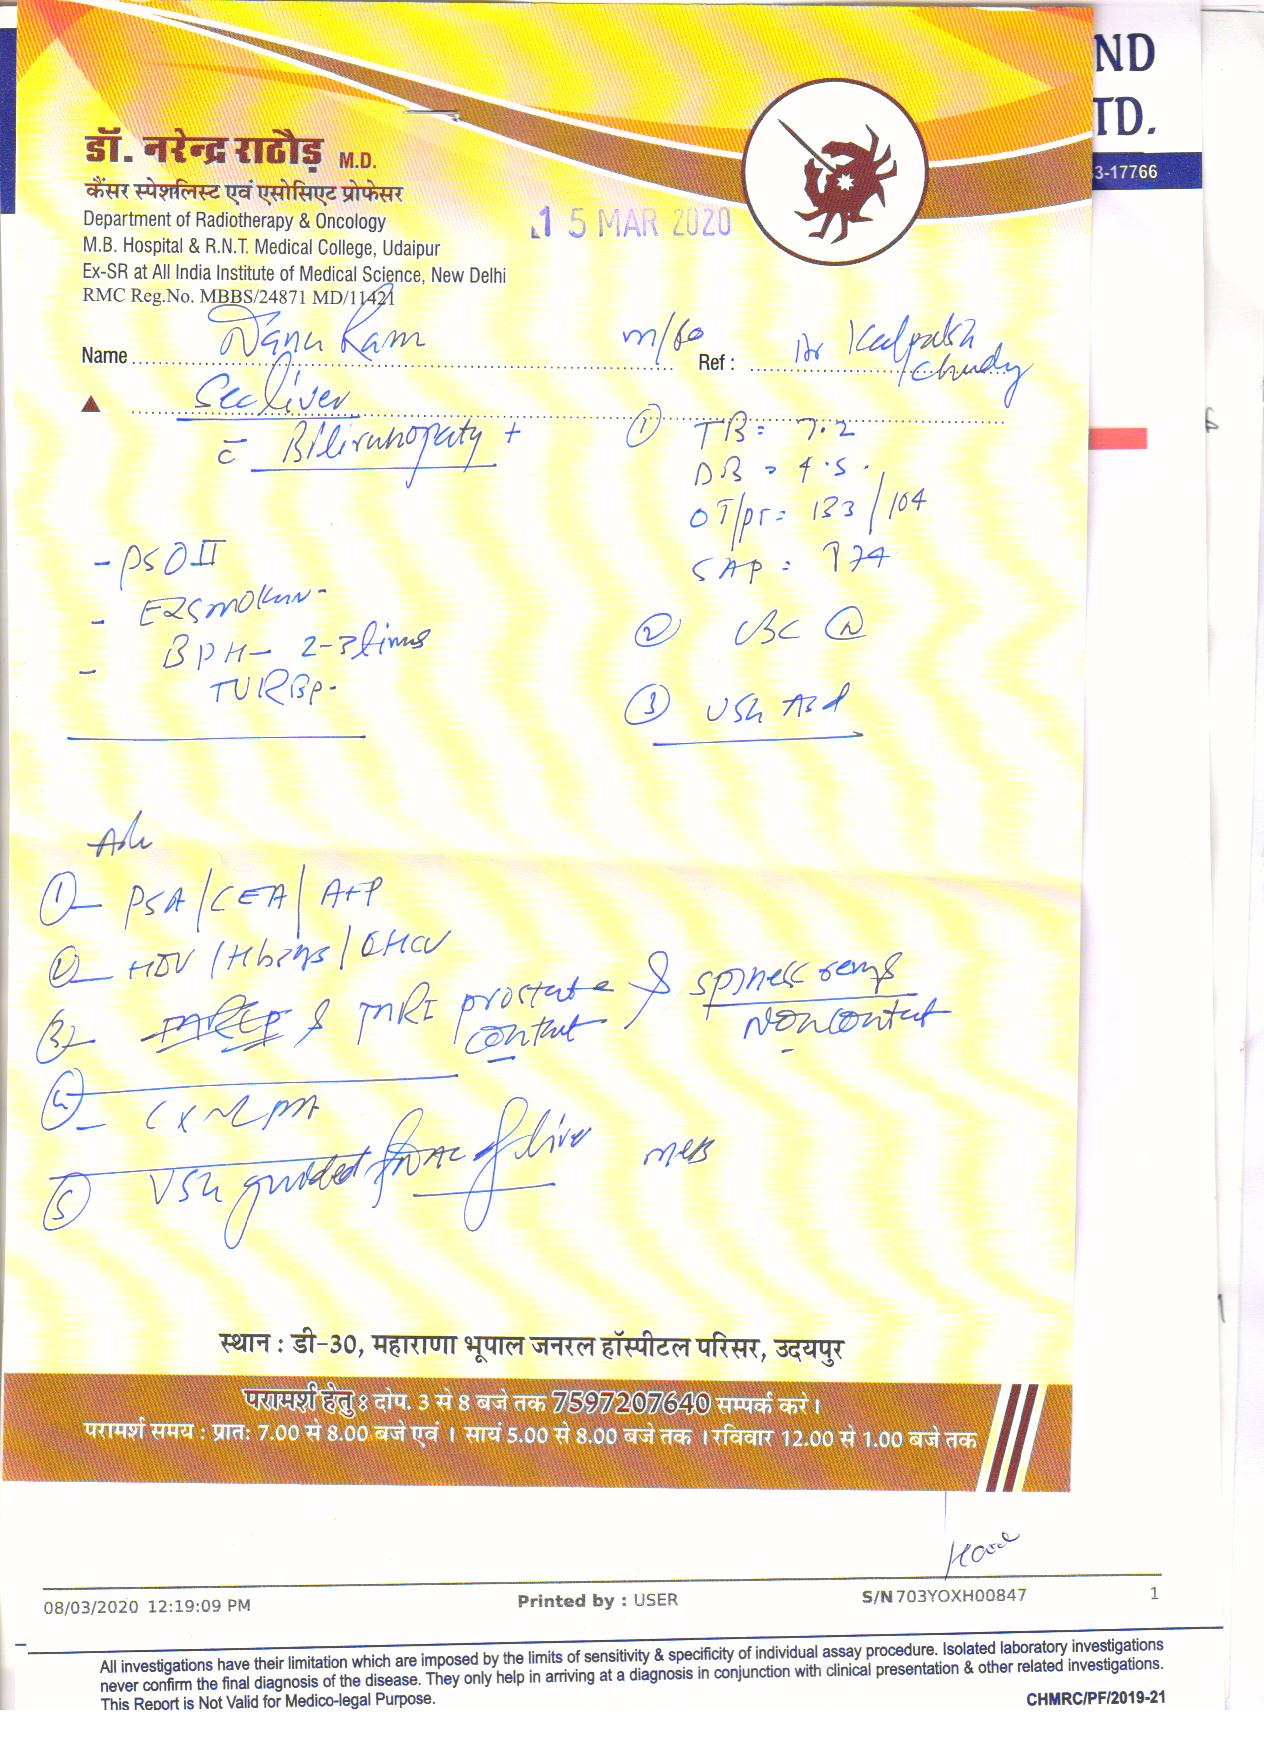 ND
TD.
3-17766
डॉ. नरेन्द्र राठौड़ M.D.
कैंसर स्पेशलिस्ट एवं एसोसिएट प्रोफेसर
Department of Radiotherapy & Oncology
M.B. Hospital & R.N.T. Medical College, Udaipur
Ex-SR at All India Institute of Medical Science, New Delhi
RMC Reg.No. MBBS/24871 MD/11421
15 MAR 2020
Name Ram m/60 Ref : Dr
Sec liver
c̄ +
① TB = 7.2
DB = 4.5
OT/PT = 133/104
SAP = 174
- PSO II
- BPH - 2-3 times
TURBP-
② CBC Ⓝ
③ USG Abd
Adv
① PSA/CEA/AFP
② /HCV
③ MRCP & MRI prostate & spine
contrast Noncontrast
④ CXR PA
⑤ USG guided FNAC of liver
स्थान : डी-30, महाराणा भूपाल जनरल हॉस्पीटल परिसर, उदयपुर
परामर्श हेतु : दोप. 3 से 8 बजे तक 7597207640 सम्पर्क करे ।
परामर्श समय : प्रात: 7.00 से 8.00 बजे एवं । सायं 5.00 से 8.00 बजे तक । रविवार 12.00 से 1.00 बजे तक
08/03/2020 12:19:09 PM Printed by : USER S/N 703YOXH00847 1
All investigations have their limitation which are imposed by the limits of sensitivity & specificity of individual assay procedure. Isolated laboratory investigations
never confirm the final diagnosis of the disease. They only help in arriving at a diagnosis in conjunction with clinical presentation & other related investigations.
This Report is Not Valid for Medico-legal Purpose.
CHMRC/PF/2019-21